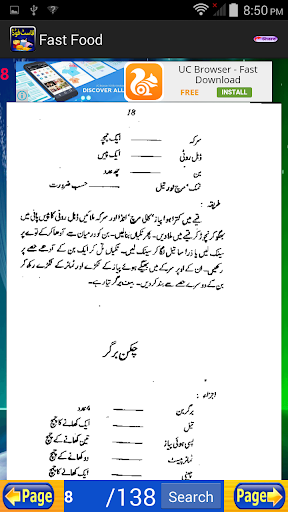 8:50 PM
Fast Food
8
UC Browser - Fast Download
FREE
INSTALL
DISCOVER
18
سرکہ ایک چمچہ
ڈبل روٹی ایک پیس
بن چھ عدد
نمک، مرچ اور تیل حسب ضرورت
طریقہ :
قیمے میں کترا ہوا پیاز، کچلی مرچ، انڈا اور سرکہ ملائیں ڈبل روٹی کا پیس پانی میں
بھگو کر نچوڑ کر قیمے میں ملا دیں۔ پھر ٹکیاں بنا لیں۔ بن کو درمیان سے کاٹ کر توے پر
سینک لیں یا ذرا سا تیل لگا کر سینک لیں۔ ٹکیاں تل کر ایک بن کے آدھے حصے پر
رکھیں۔ ان کے اوپر سرکے میں بھیگے ہوئے پیاز کے ٹکڑے اور ٹماٹر کے ٹکڑے رکھ کر
بن کے دوسرے حصے سے بند کر دیں۔ بیف برگر تیار ہے۔
چکن برگر
اجزاء :
برگر بن ۴ عدد
تیل ایک کھانے کا چمچ
پسی ہوئی پیاز تین کھانے کے چمچ
ٹماٹر پیسٹ دو کھانے کے چمچ
چینی ایک کھانے کا چمچ
Page
8
/138
Search
Page